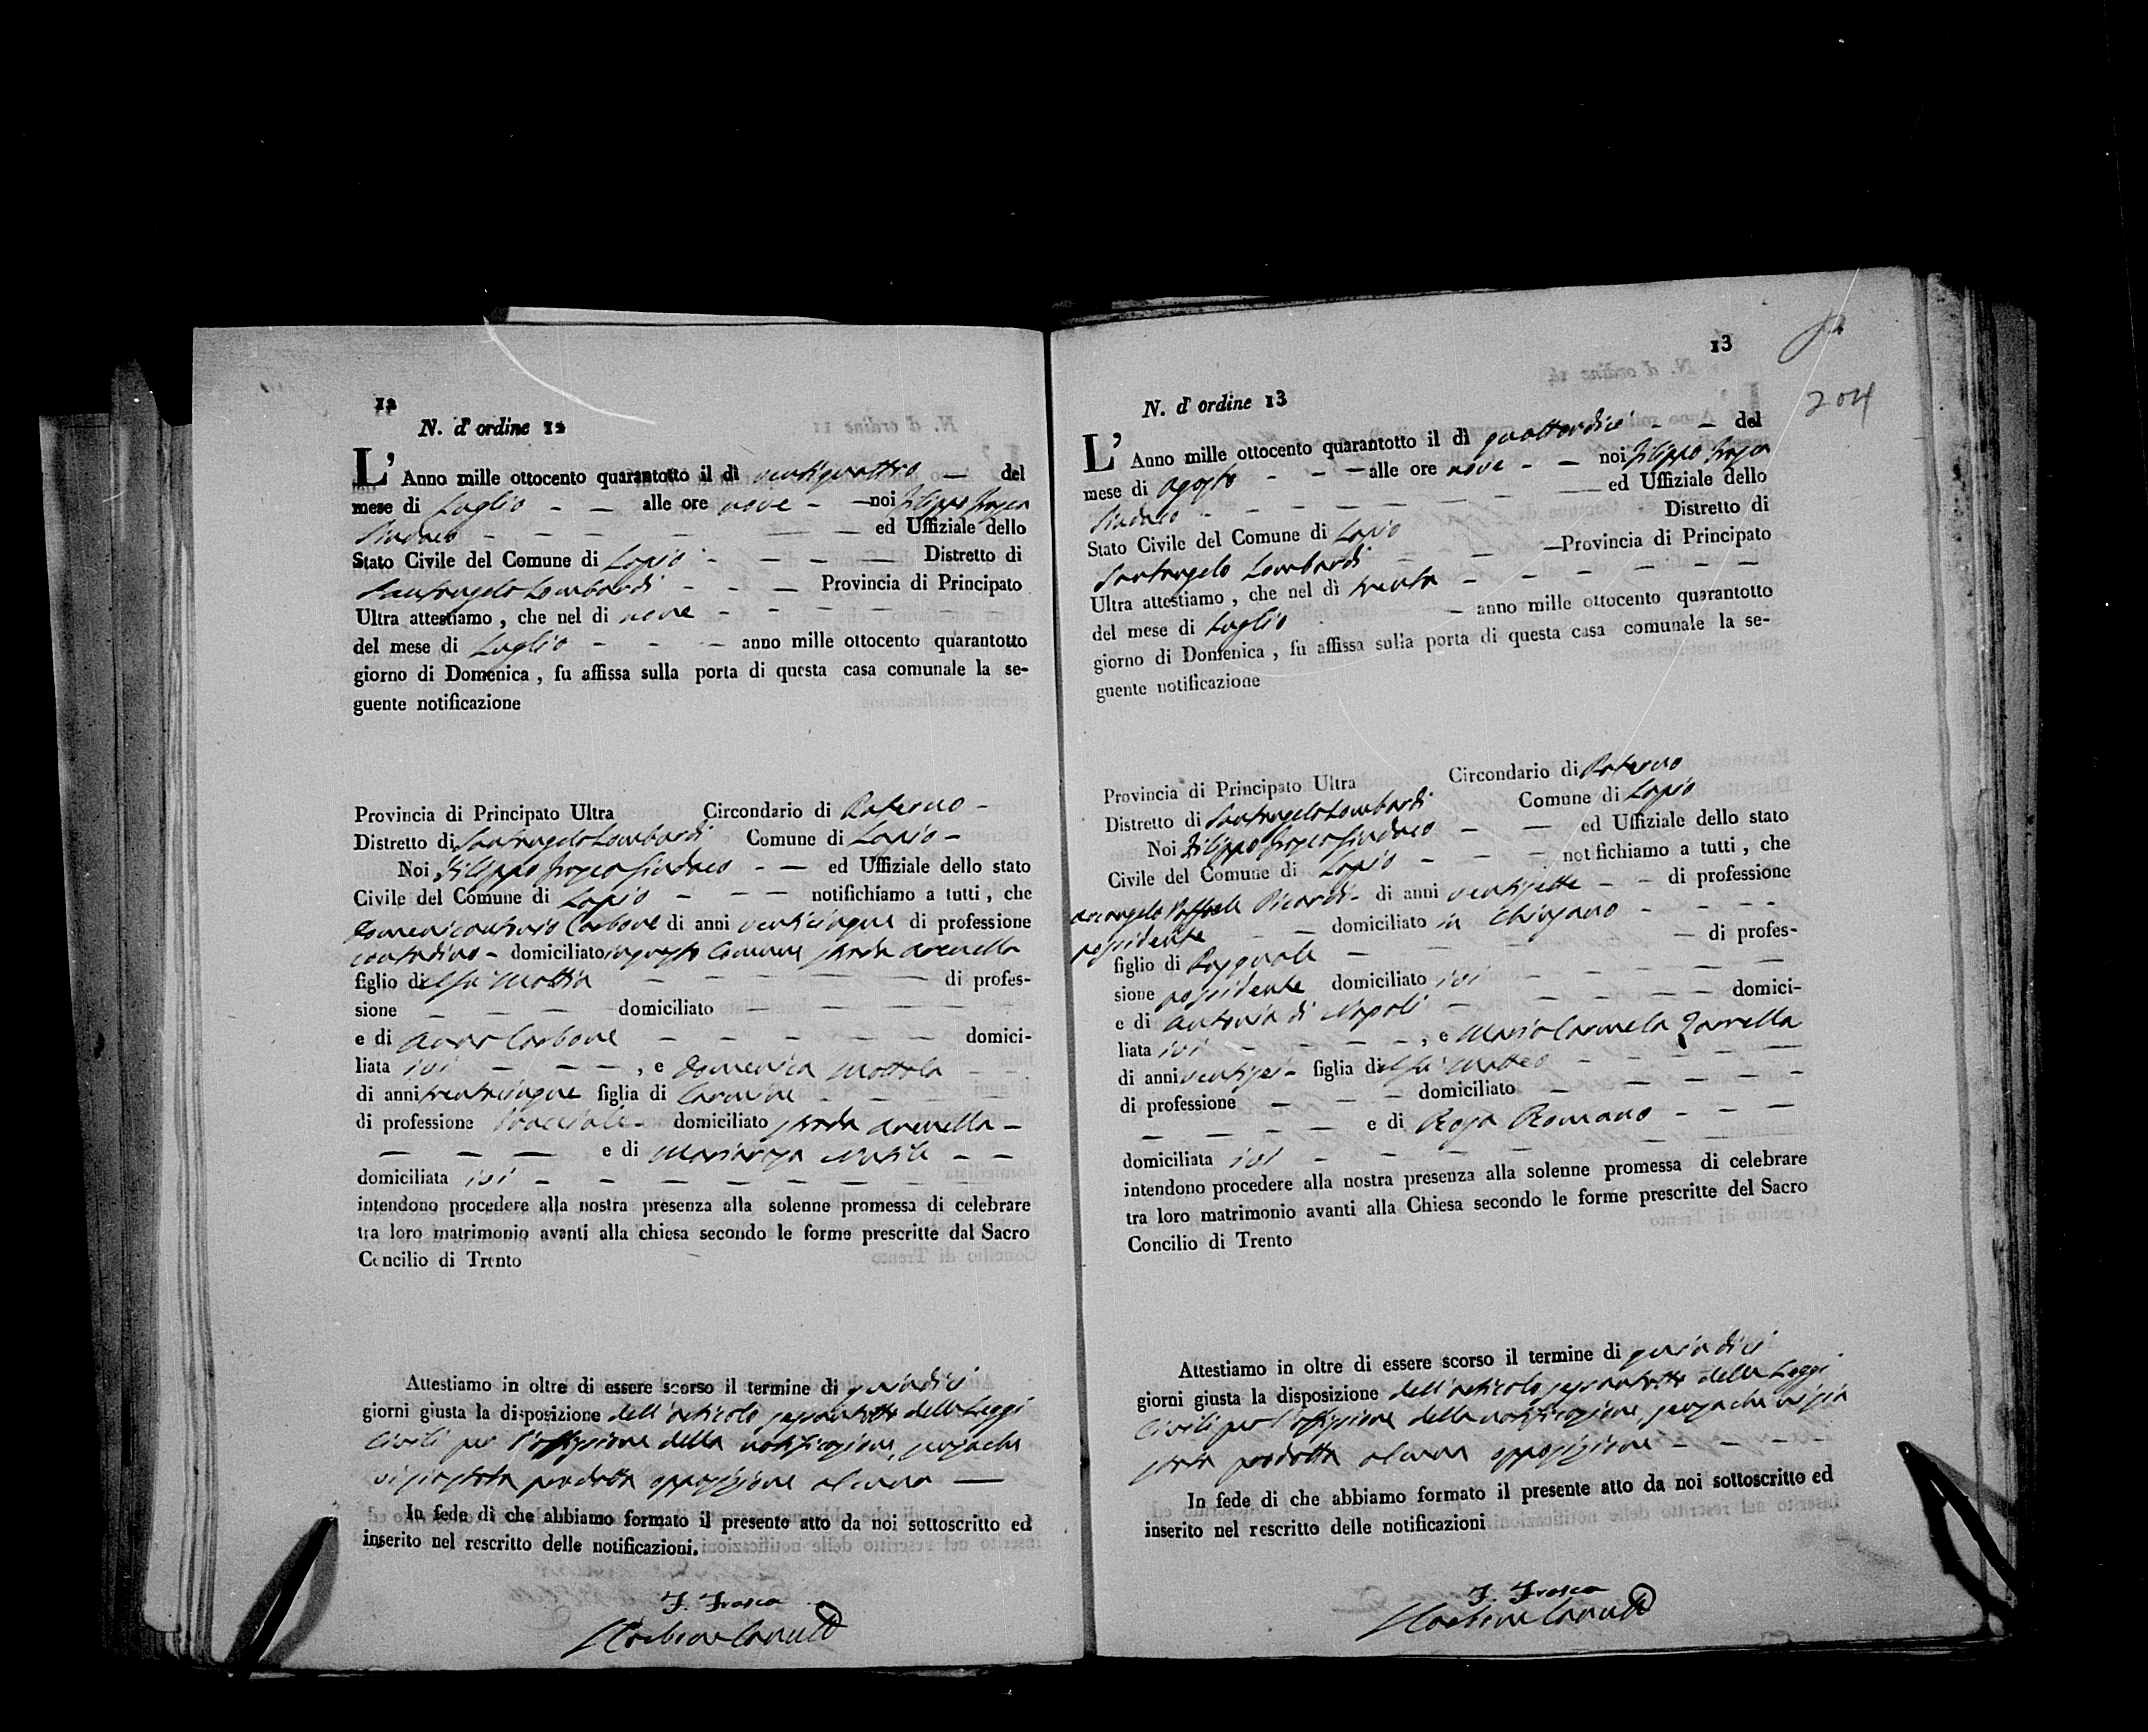 12
N. d' ordine 12
L' Anno mille ottocento quarantotto il dì ventiquattro — del
mese di Luglio - — alle ore nove - — noi Filippo Frasca
Sindaco - — — — — — — ed Uffiziale dello
Stato Civile del Comune di Lapio - — — — Distretto di
Santangelo Lombardi - - — Provincia di Principato
Ultra attestiamo , che nel di nove - - - — — — —
del mese di Luglio - - - — anno mille ottocento quarantotto
giorno di Domenica , fu affissa sulla porta di questa casa comunale la se-
guente notificazione
Provincia di Principato Ultra Circondario di Paterno -
Distretto di Santangelo Lombardi Comune di Lapio -
Noi Filippo Frasca Sindaco - — ed Uffiziale dello stato
Civile del Comune di Lapio - — — notifichiamo a tutti , che
Domenicantonio Carbone di anni venticinque di professione
contadino - domiciliato in questo Comune strada Arenella
figlio del fu Mattia — — — — — di profes-
sione — — — domiciliato — — — —
e di Anna Carbone — — — — — domici-
liata ivi — — — , e Domenica Mottola — —
di anni trentacinque figlia di Carmine — — — —
di professione bracciale - domiciliato strada Arenella —
— — — e di Mariarosa — —
domiciliata ivi — — — — — — —
intendono procedere alla nostra presenza alla solenne promessa di celebrare
tra loro matrimonio avanti alla chiesa secondo le forme prescritte dal Sacro
Concilio di Trento
Attestiamo in oltre di essere scorso il termine di quindici
giorni giusta la disposizione dell'articolo sessantotto delle Leggi
Civili per l'affissione della notificazione, senza che
vi sia stata prodotta opposizione alcuna —
In fede di che abbiamo formato il presente atto da noi sottoscritto ed
inserito nel rescritto delle notificazioni.
F. Frasca
13
204
N. d' ordine 13
L' Anno mille ottocento quarantotto il dì quattordici - — del
mese di Agosto - — — alle ore nove - — noi Filippo Frasca
Sindaco - - — — — — — ed Uffiziale dello
Stato Civile del Comune di Lapio Distretto di
Santangelo Lombardi — — — Provincia di Principato
Ultra attestiamo , che nel dì trenta - — — — — —
del mese di Luglio - — anno mille ottocento quarantotto
giorno di Domenica , fu affissa sulla porta di questa casa comunale la se-
guente notificazione
Provincia di Principato Ultra Circondario di Paterno
Distretto di Santangelo Lombardi Comune di Lapio
Noi Filippo Frasca Sindaco - — ed Uffiziale dello stato
Civile del Comune di Lapio - — — notifichiamo a tutti , che
Arcangelo Raffaele Picardi - di anni ventisette - - di professione
possidente - — domiciliato in Chiusano - - - -
figlio di Pasquale — — — — — di profes-
sione possidente domiciliato ivi — — — — —
e di Antonia di Napoli — — — — — domici-
liata ivi - — — — , e Maria Carmela Zarrella
di anni ventisei - figlia del fu Matteo - — — —
di professione — — — domiciliato — — — —
— — — — e di Rosa Romano - — —
domiciliata ivi — — — — — — —
intendono procedere alla nostra presenza alla solenne promessa di celebrare
tra loro matrimonio avanti alla Chiesa secondo le forme prescritte del Sacro
Concilio di Trento
Attestiamo in oltre di essere scorso il termine di quindici
giorni giusta la disposizione dell'articolo sessantotto delle Leggi
Civili per l'affissione della notificazione, senza che vi sia
stata prodotta alcuna opposizione - — — -
In fede di che abbiamo formato il presente atto da noi sottoscritto ed
inserito nel rescritto delle notificazioni
F. Frasca